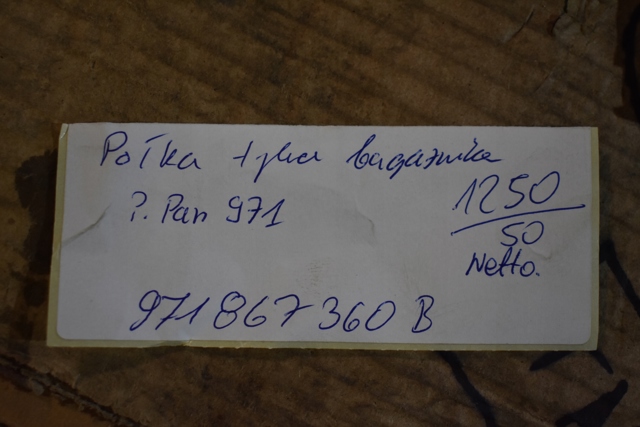 Połka tylna bagażnika
P. Pan 971
1250
50
Netto.
971 867 360 B